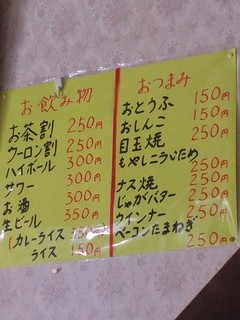 お飲み物
お茶割 250円
ウーロン割 250円
ハイボール 300円
サワー 300円
お酒 300円
生ビール 350円
カレーライス 350円
ライス 150円
おつまみ
おとうふ 150円
おしんこ 150円
目玉焼 250円
もやしニラいため 250円
ナス焼 250円
じゃがバター 250円
ウインナー 250円
ベーコンたまねぎ 250円